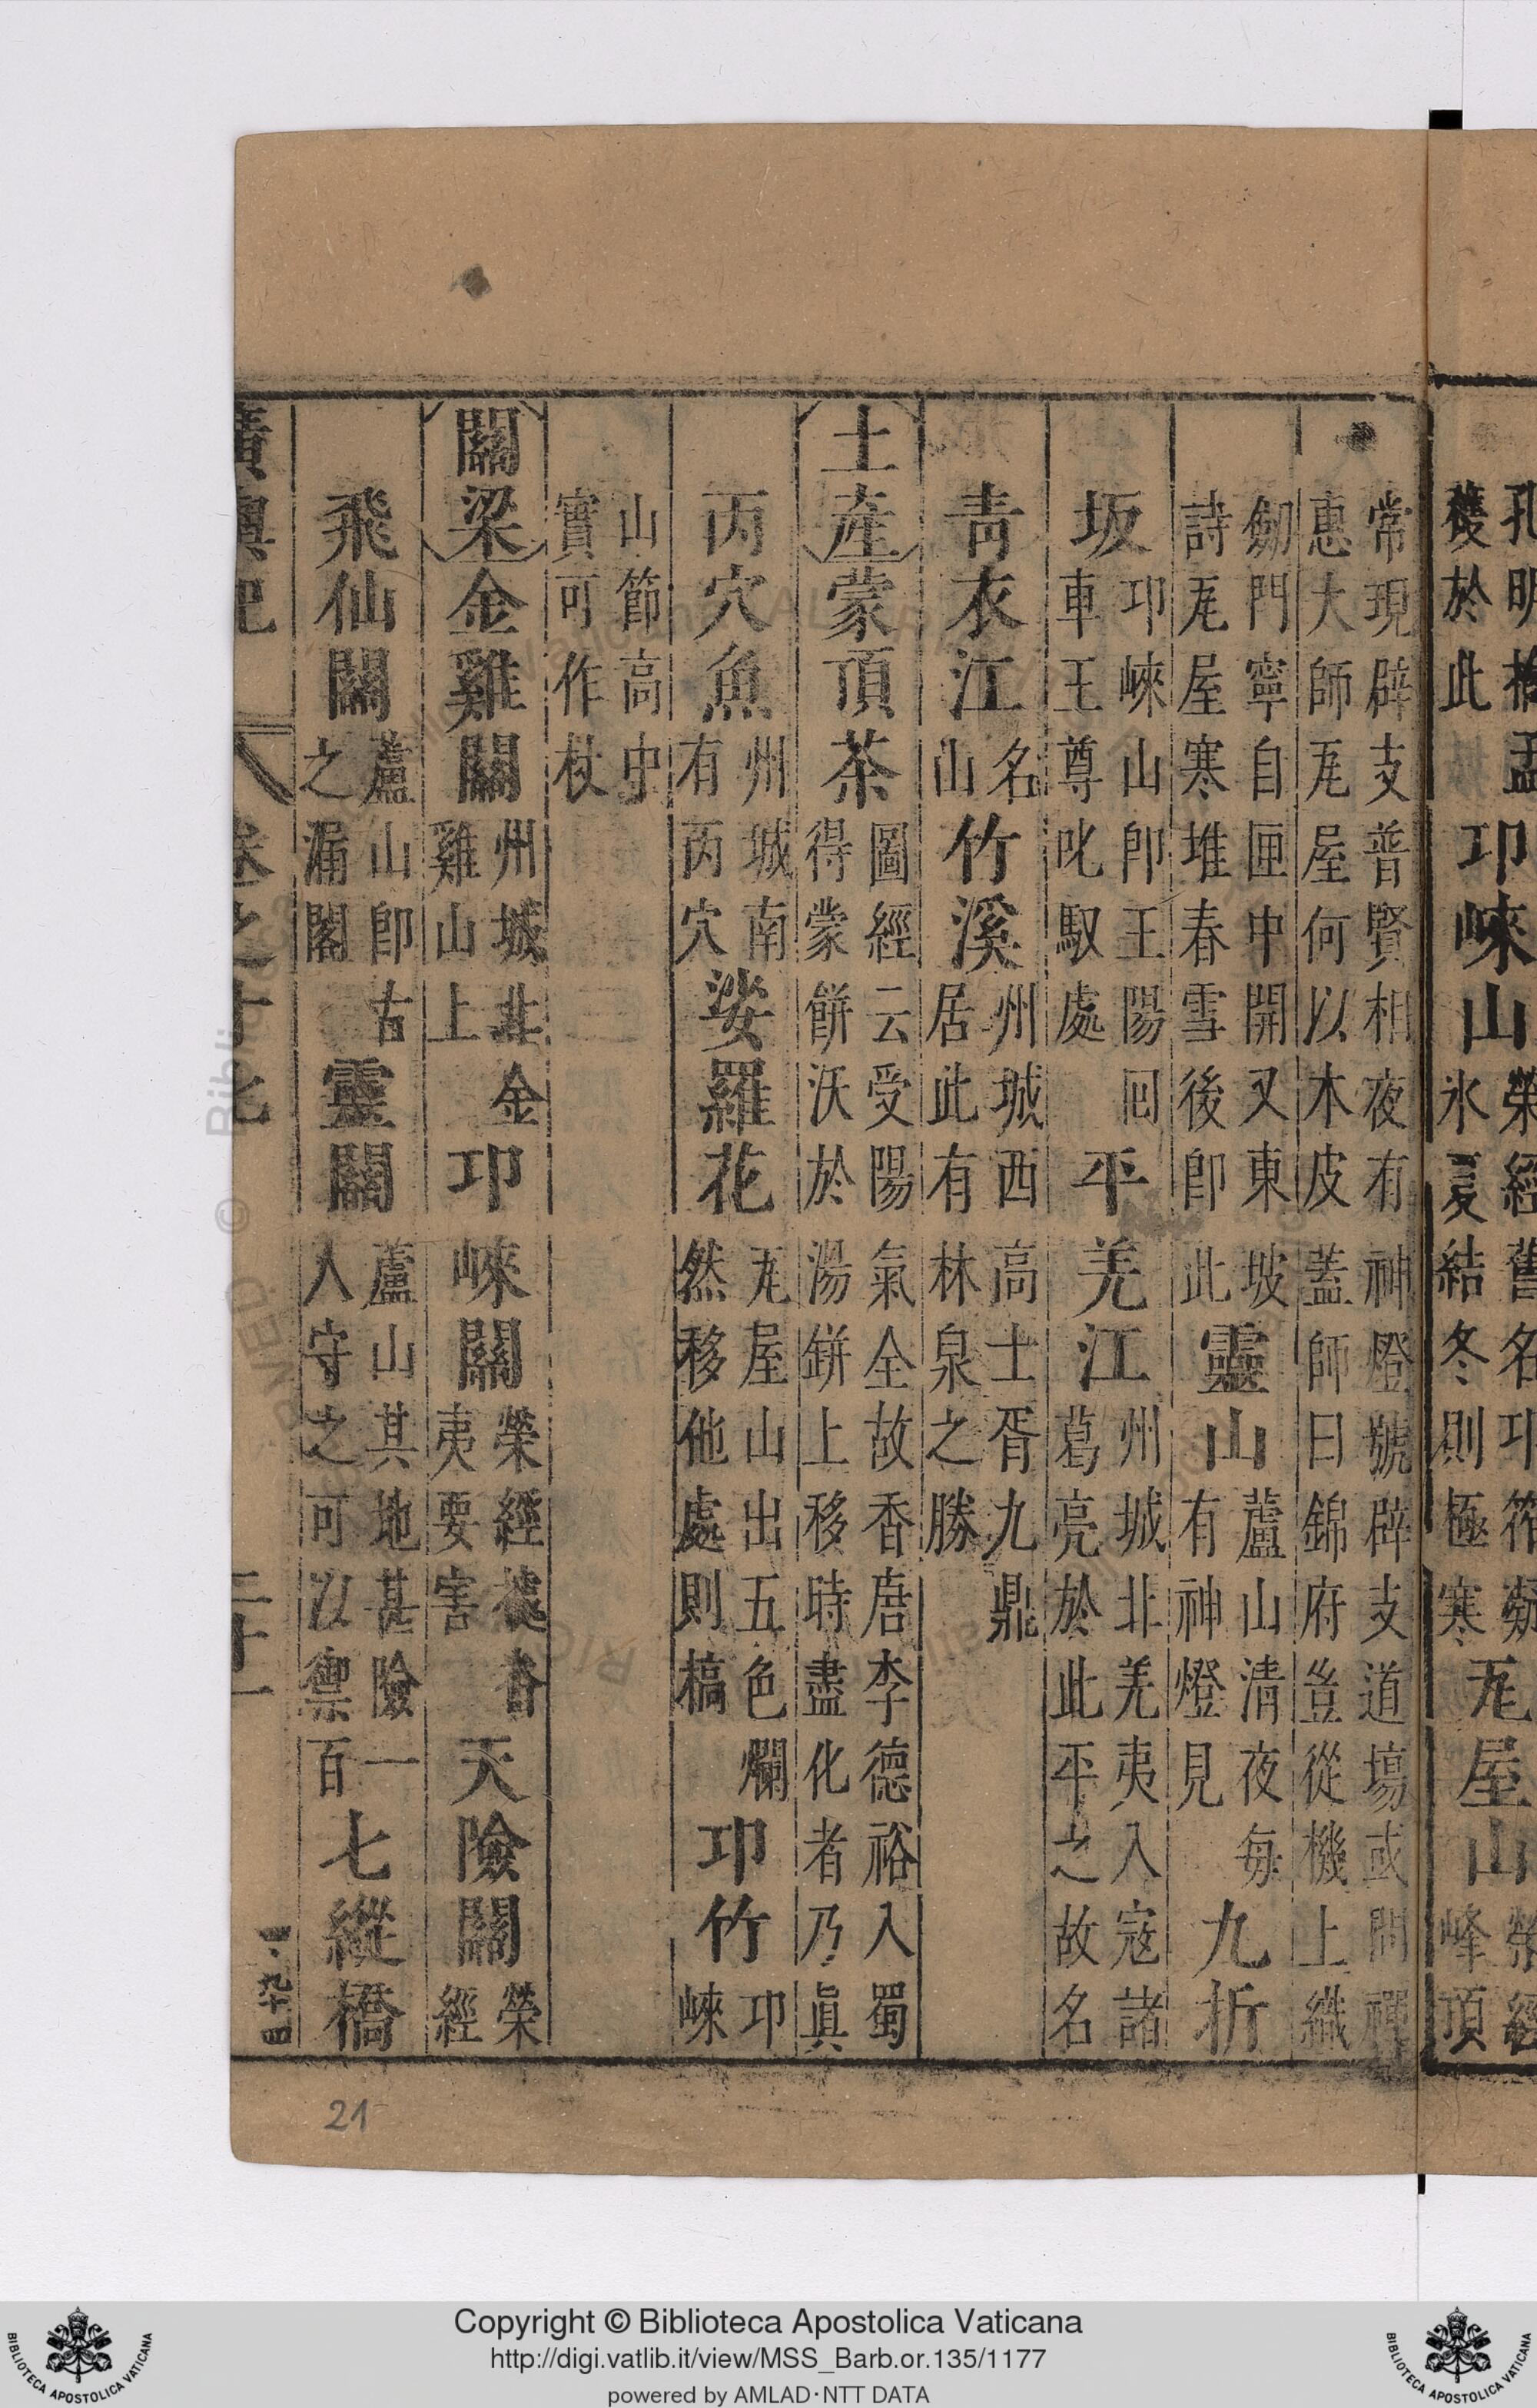 穫於此
邛崍山
氷夏結冬則極寒
瓦屋山
峰頂
常現辟支普賢相夜有神燈號辟支道塲或問禪
惠大師瓦屋何以木皮蓋師曰錦府豈從機上織
劒門寧自匣中開又東坡
詩瓦屋寒堆春雪後卽此
靈山
蘆山清夜每
有神燈見
九折
坂
邛崍山卽王陽回
車王尊叱馭處
平羌江
州城北羌夷入寇諸
葛亮於此平之故名
青衣江
名
山
竹溪
州城西高士胥九鼎
居此有林泉之勝
土產
蒙頂茶
圖經云受陽氣全故香唐李德裕入蜀
得蒙餅沃於湯鉼上移時盡化者乃眞
丙穴魚
州城南
有丙穴
娑羅花
瓦屋山出五色爛
然移他處則槁
邛竹
邛
崍
山節高中
實可作杖
關梁
金雞關
州城北金
雞山上
邛崍關
榮經
夷要害
天險關
榮
經
飛仙關
蘆山卽古
之漏閣
靈關
蘆山其地甚險一
人守之可以禦百
七縱橋
廣輿記
卷之十七
二十一
21
Copyright © Biblioteca Apostolica Vaticana
http://digi.vatlib.it/view/MSS_Barb.or.135/1177
powered by AMLAD･NTT DATA
BIBLIOTECA APOSTOLICA VATICANA
BIBLIOTECA APOSTOLICA VATICANA